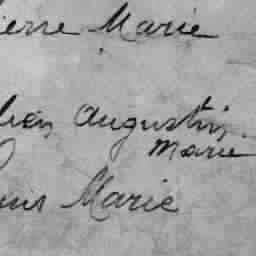 ierre Marie
Augustin
Marie
ouis Marie